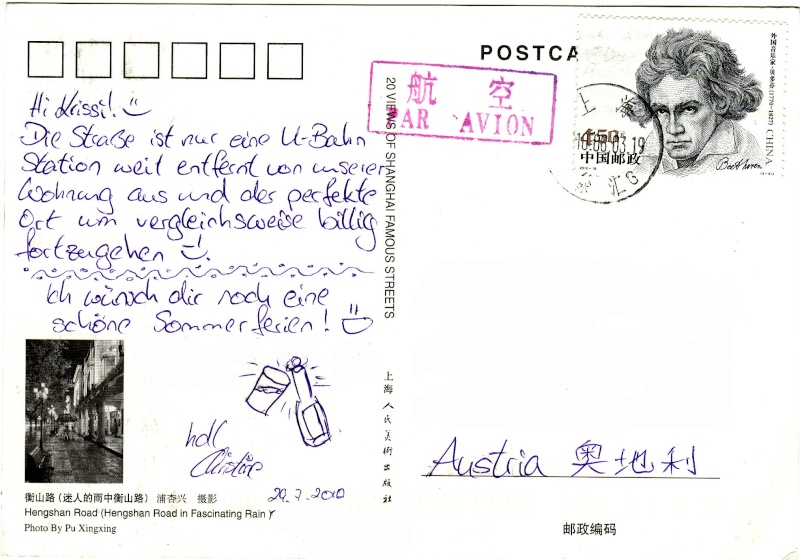 POSTCA
航 空
PAR AVION
外国音乐家·贝多芬(1770-1827)
CHINA
中国邮政
Beethoven
上 海
汇 6
20 VIEWS OF SHANGHAI FAMOUS STREETS
上海人民美術出版社
Hi Krissi!
Die Straße ist nur eine U-Bahn
Station weit entfernt von unserer
Wohnung aus und der perfekte
Ort um vergleichsweise billig
fortzugehen
Ich wünsch dir noch eine
schöne Sommerferien!
hdl
Christine
29.7.2010
衡山路(迷人的雨中衡山路) 浦杏兴 摄影
Hengshan Road (Hengshan Road in Fascinating Rain)
Photo By Pu Xingxing
Austria 奥地利
邮政编码